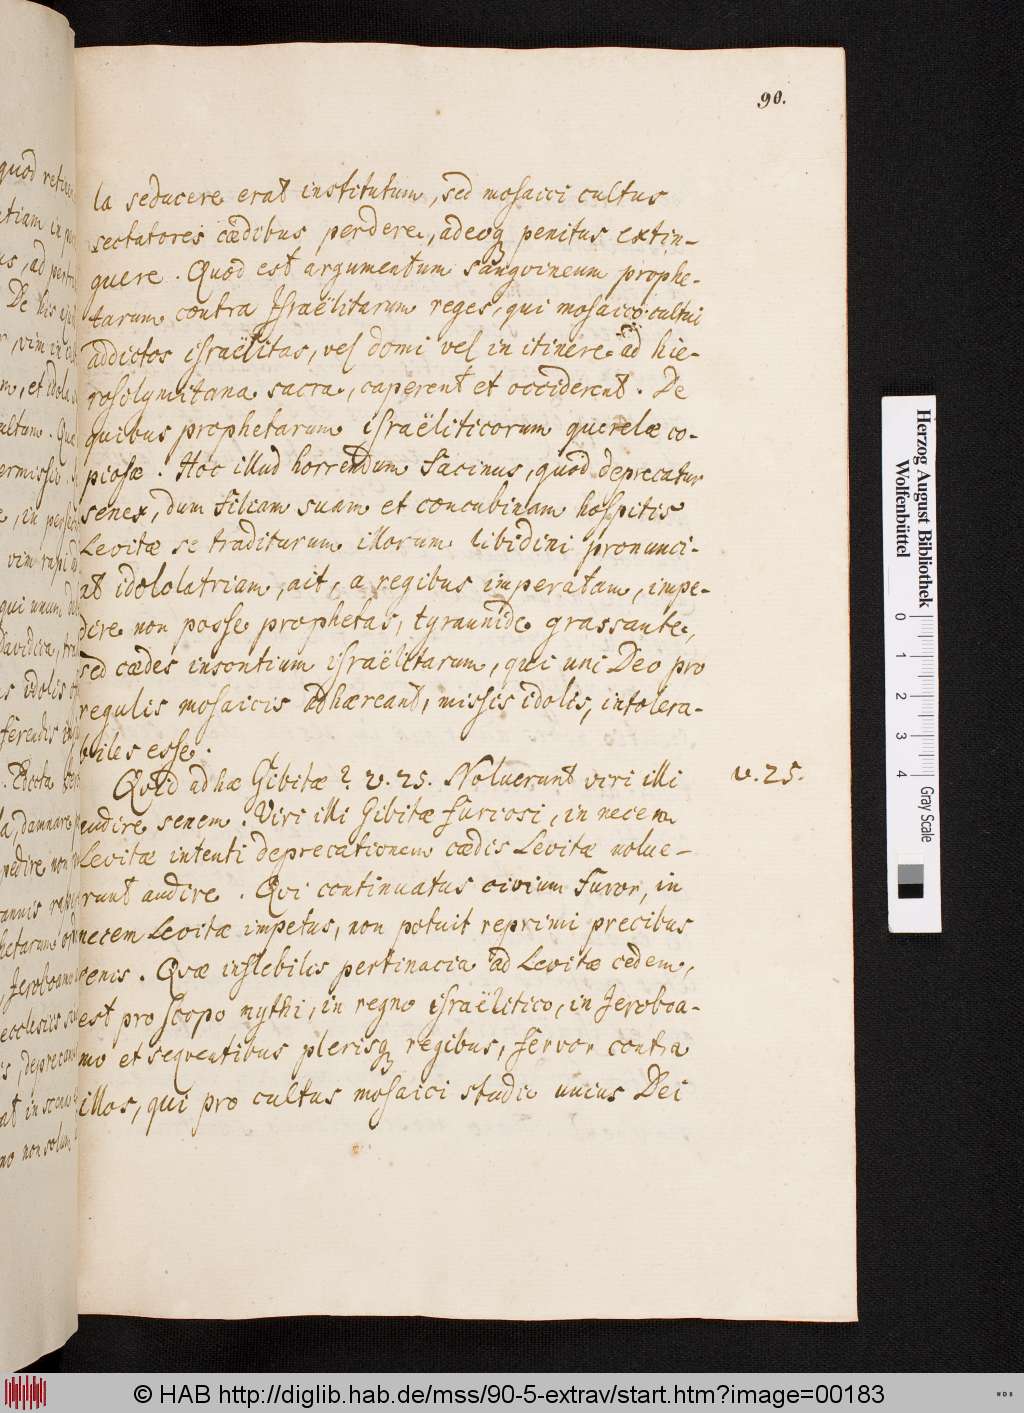 90.
la seducere erat institutum, sed mosaici cultus
sectatores cædibus perdere, adeoq penitus extin-
guere. Quod est argumentum sangvineum prophe-
tarum contra Israëlitarum reges, qui mosaico cultui
addictos israëlitas, vel domi vel in itinere ad hie-
rosolymitana sacra, caperent et occiderent. De
quibus prophetarum israëliticorum querelæ co-
piosæ. Hoc illud horrendum facinus, quod deprecatur
senex, dum filiam suam et concubinam hospitis
Levitæ se traditurum illorum libidini pronunci-
at idololatriam, ait, a regibus imperatam, impe-
dire non posse prophetas, tyrannide grassante,
sed cædes insontium israëlitarum, qui uni Deo pro
regulis mosaicis adhæreant, missis idolis, intolera-
biles esse.
Quid ad hæ Gibitæ? v. 25. Noluerunt viri illi
audire senem. Viri illi Gibitæ furiosi, in necem
Levitæ intenti deprecationem cædis Levitæ nolue-
runt audire. Qvi continuatus civium furor, in
necem Levitæ impetus, non potuit reprimi precibus
senis. Qvæ inflebilis pertinacia ad Levitæ cedem,
est pro scopo mythi, in regno israëlitico, in Jeroboa-
mo et seqventibus plerisq regibus, fervor contra
illos, qui pro cultus mosaici studio unius Dei
v. 25.
Herzog August Bibliothek
Wolfenbüttel
0 1 2 3 4
Gray Scale
© HAB http://diglib.hab.de/mss/90-5-extrav/start.htm?image=00183